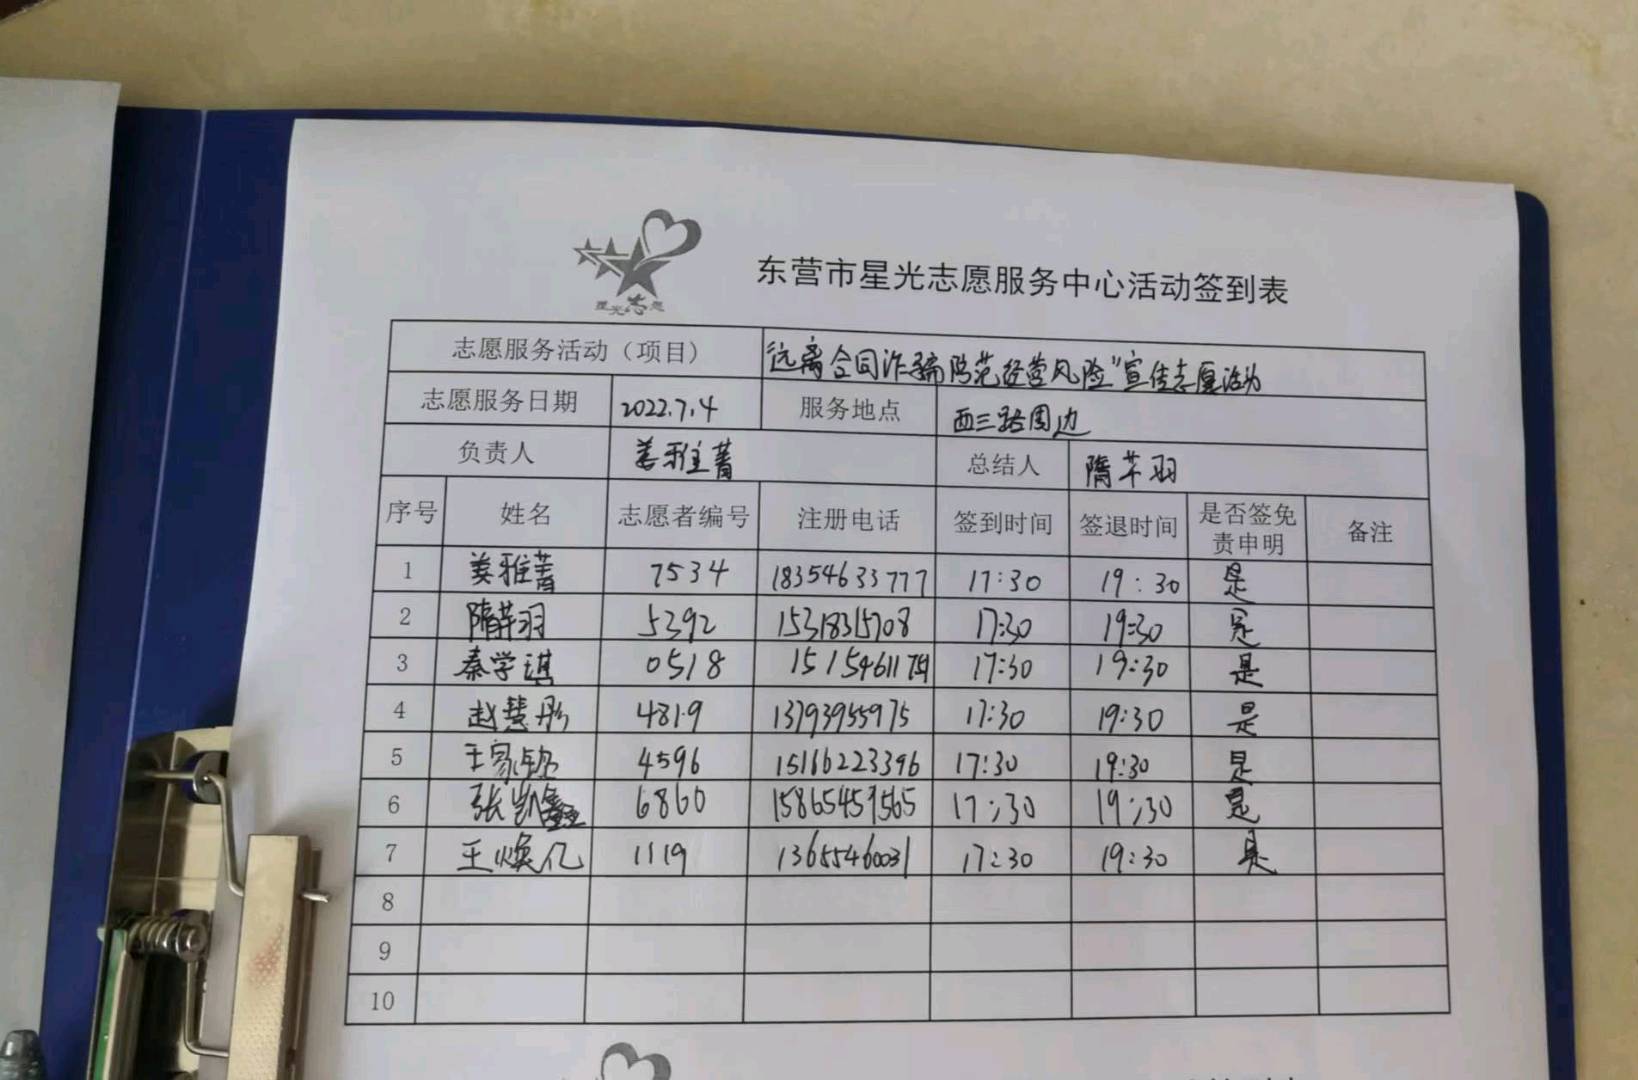 星光志愿
东营市星光志愿服务中心活动签到表
志愿服务活动（项目） “远离合同诈骗防范经营风险”宣传志愿活动
志愿服务日期 2022.7.4 服务地点 西三路周边
负责人 姜雅菁 总结人 隋芊羽
序号 姓名 志愿者编号 注册电话 签到时间 签退时间 是否签免责申明 备注
1 姜雅菁 7534 18354633777 17:30 19:30 是
2 隋芊羽 5392 15318315708 17:30 19:30 是
3 秦学淇 0518 17:30 19:30 是
4 赵慧彤 4819 13793955975 17:30 19:30 是
5 王家 4596 15166223396 17:30 19:30 是
6 张凯鑫 6860 15865459565 17:30 19:30 是
7 王焕亿 1119 13655460031 17:30 19:30 是
8
9
10